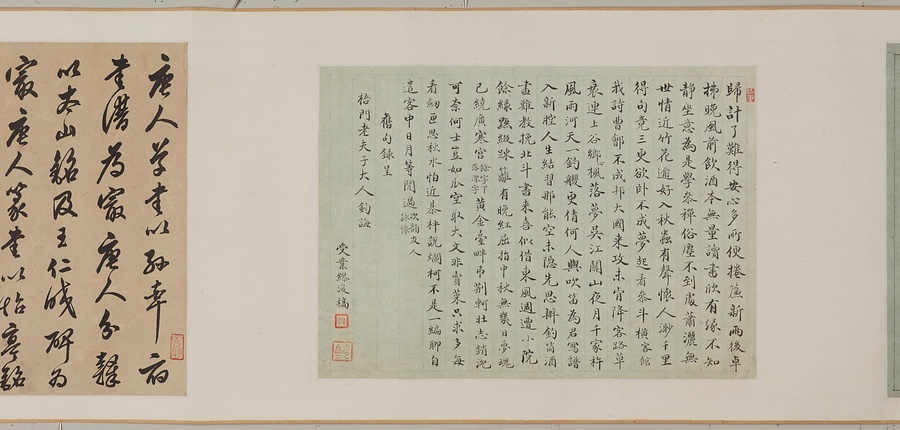 歸計了難得安心多所便捲簾新雨後卓
拂晚風前飲酒本無量讀書欣有緣不知
靜坐意為是學參禪俗塵不到處蕭灑無
世情近竹花逾好入秋蟲有聲懷人渺千里
得句竟三更欲卧不成夢起看參斗橫客館
我詩曹鄶不成邦大國來攻未肯降客路草
衰連上谷鄉楓落夢吳江關山夜月千家杵
風雨河天一釣艭更倩何人與吹笛為君寫譜
入新腔人生結習那能空未隱先思辦釣筒酒
盡難教挽北斗書來喜似借東風週遭小院
餘綠點綴踈籬有晚紅屈指中秋無幾日夢魂
已繞廣寒宮黃金臺畔弔荊軻壯志銷沈
可奈何士豈如瓜空取大文非賣菜只求多每
看劒匣思秋水怕近棊枰説爛柯不是一編聊自
遣客中日月等閒過次韻友人詠懷
舊句錄呈
梧門老夫子大人鈞誨
受業繆稿
唐人草書以孫虔
書譜為最唐人分隸
以太山銘及王仁皎碑為
最唐人篆書以怡亭銘